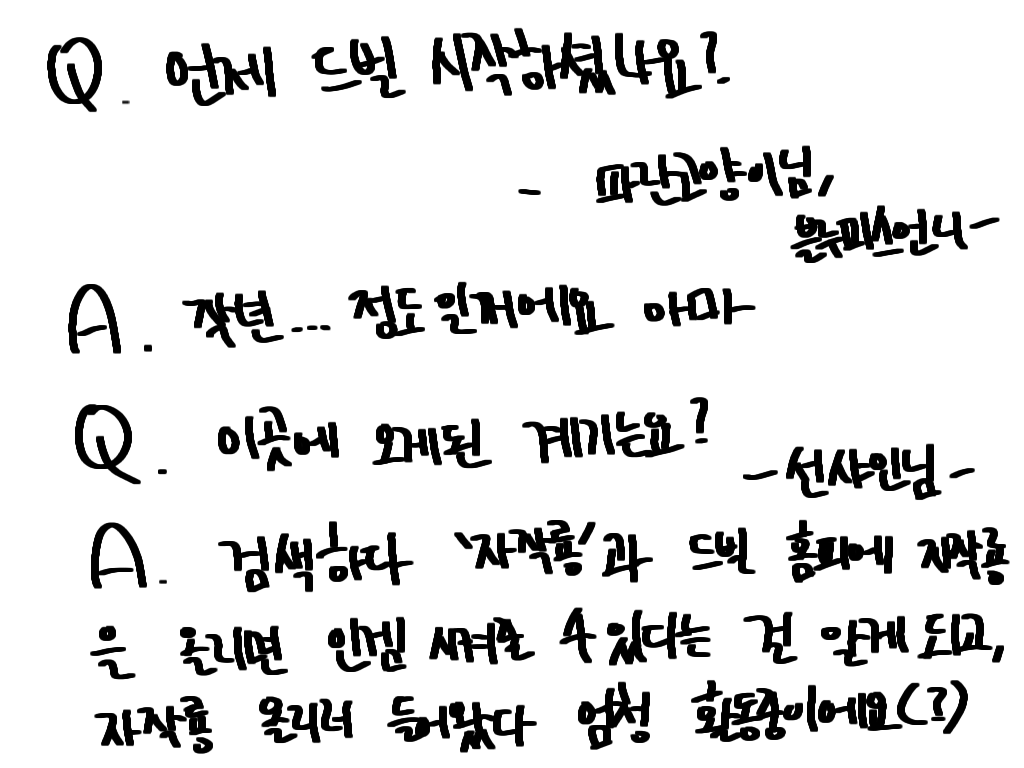 Q. 언제 드빌 시작하셨나요?
- 파란고양이님,
블루피스언니-
A. 작년... 정도일꺼에요 아마
Q. 이곳에 오게된 계기는요?
-선샤인님-
A. 검색하다 '자작룡'과 드빌 홈피에 자작룡
은 올리면 인겜 시켜줄 수 있다는 걸 알게 되고,
자작룡 올리러 들어왔다 엄청 활동중이에요(?)